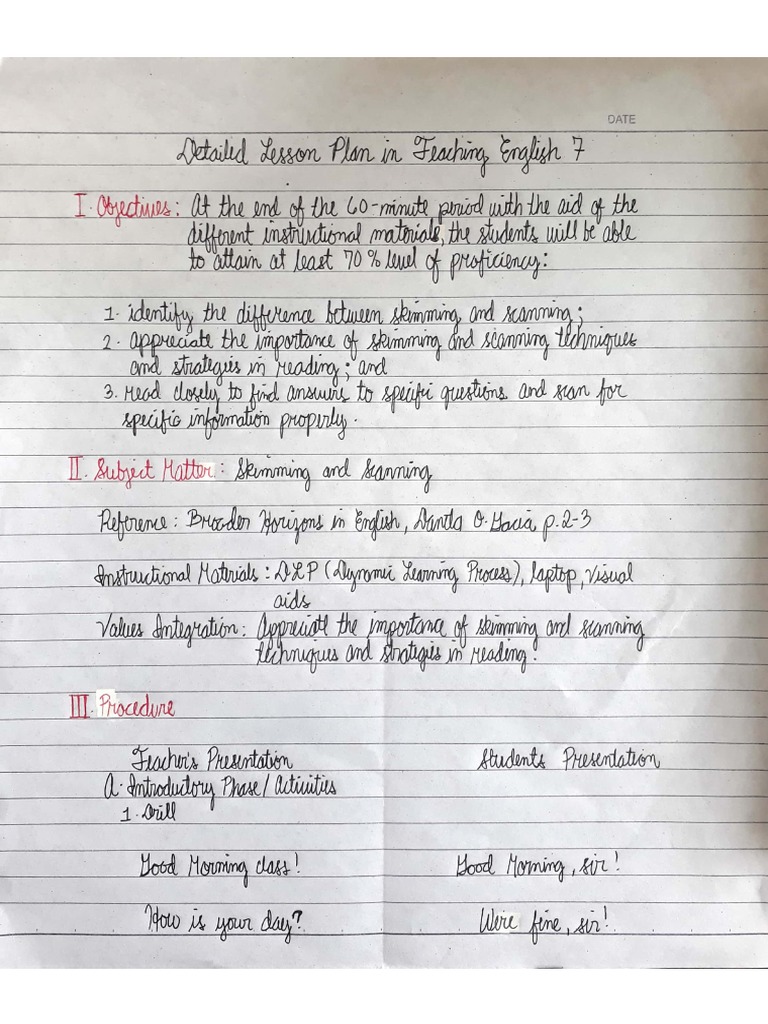 DATE
Detailed Lesson Plan in Teaching English 7
I. Objectives: At the end of the 60-minute period with the aid of the
different instructional materials, the students will be able
to attain at least 70% level of proficiency:
1. identify the difference between skimming and scanning;
2. appreciate the importance of skimming and scanning techniques
and strategies in reading; and
3. read closely to find answers to specific questions and scan for
specific information properly.
II. Subject Matter: Skimming and Scanning
Reference: Broader Horizons in English, O. p.2-3
Instructional Materials: DLP (Dynamic Learning Process), laptop, visual
aids
Values Integration: Appreciate the importance of skimming and scanning
techniques and strategies in reading.
III. Procedure
Teacher's Presentation Students Presentation
A. Introductory Phase/Activities
1. Drill
Good Morning class! Good Morning, sir!
How is your day? We're fine, sir!